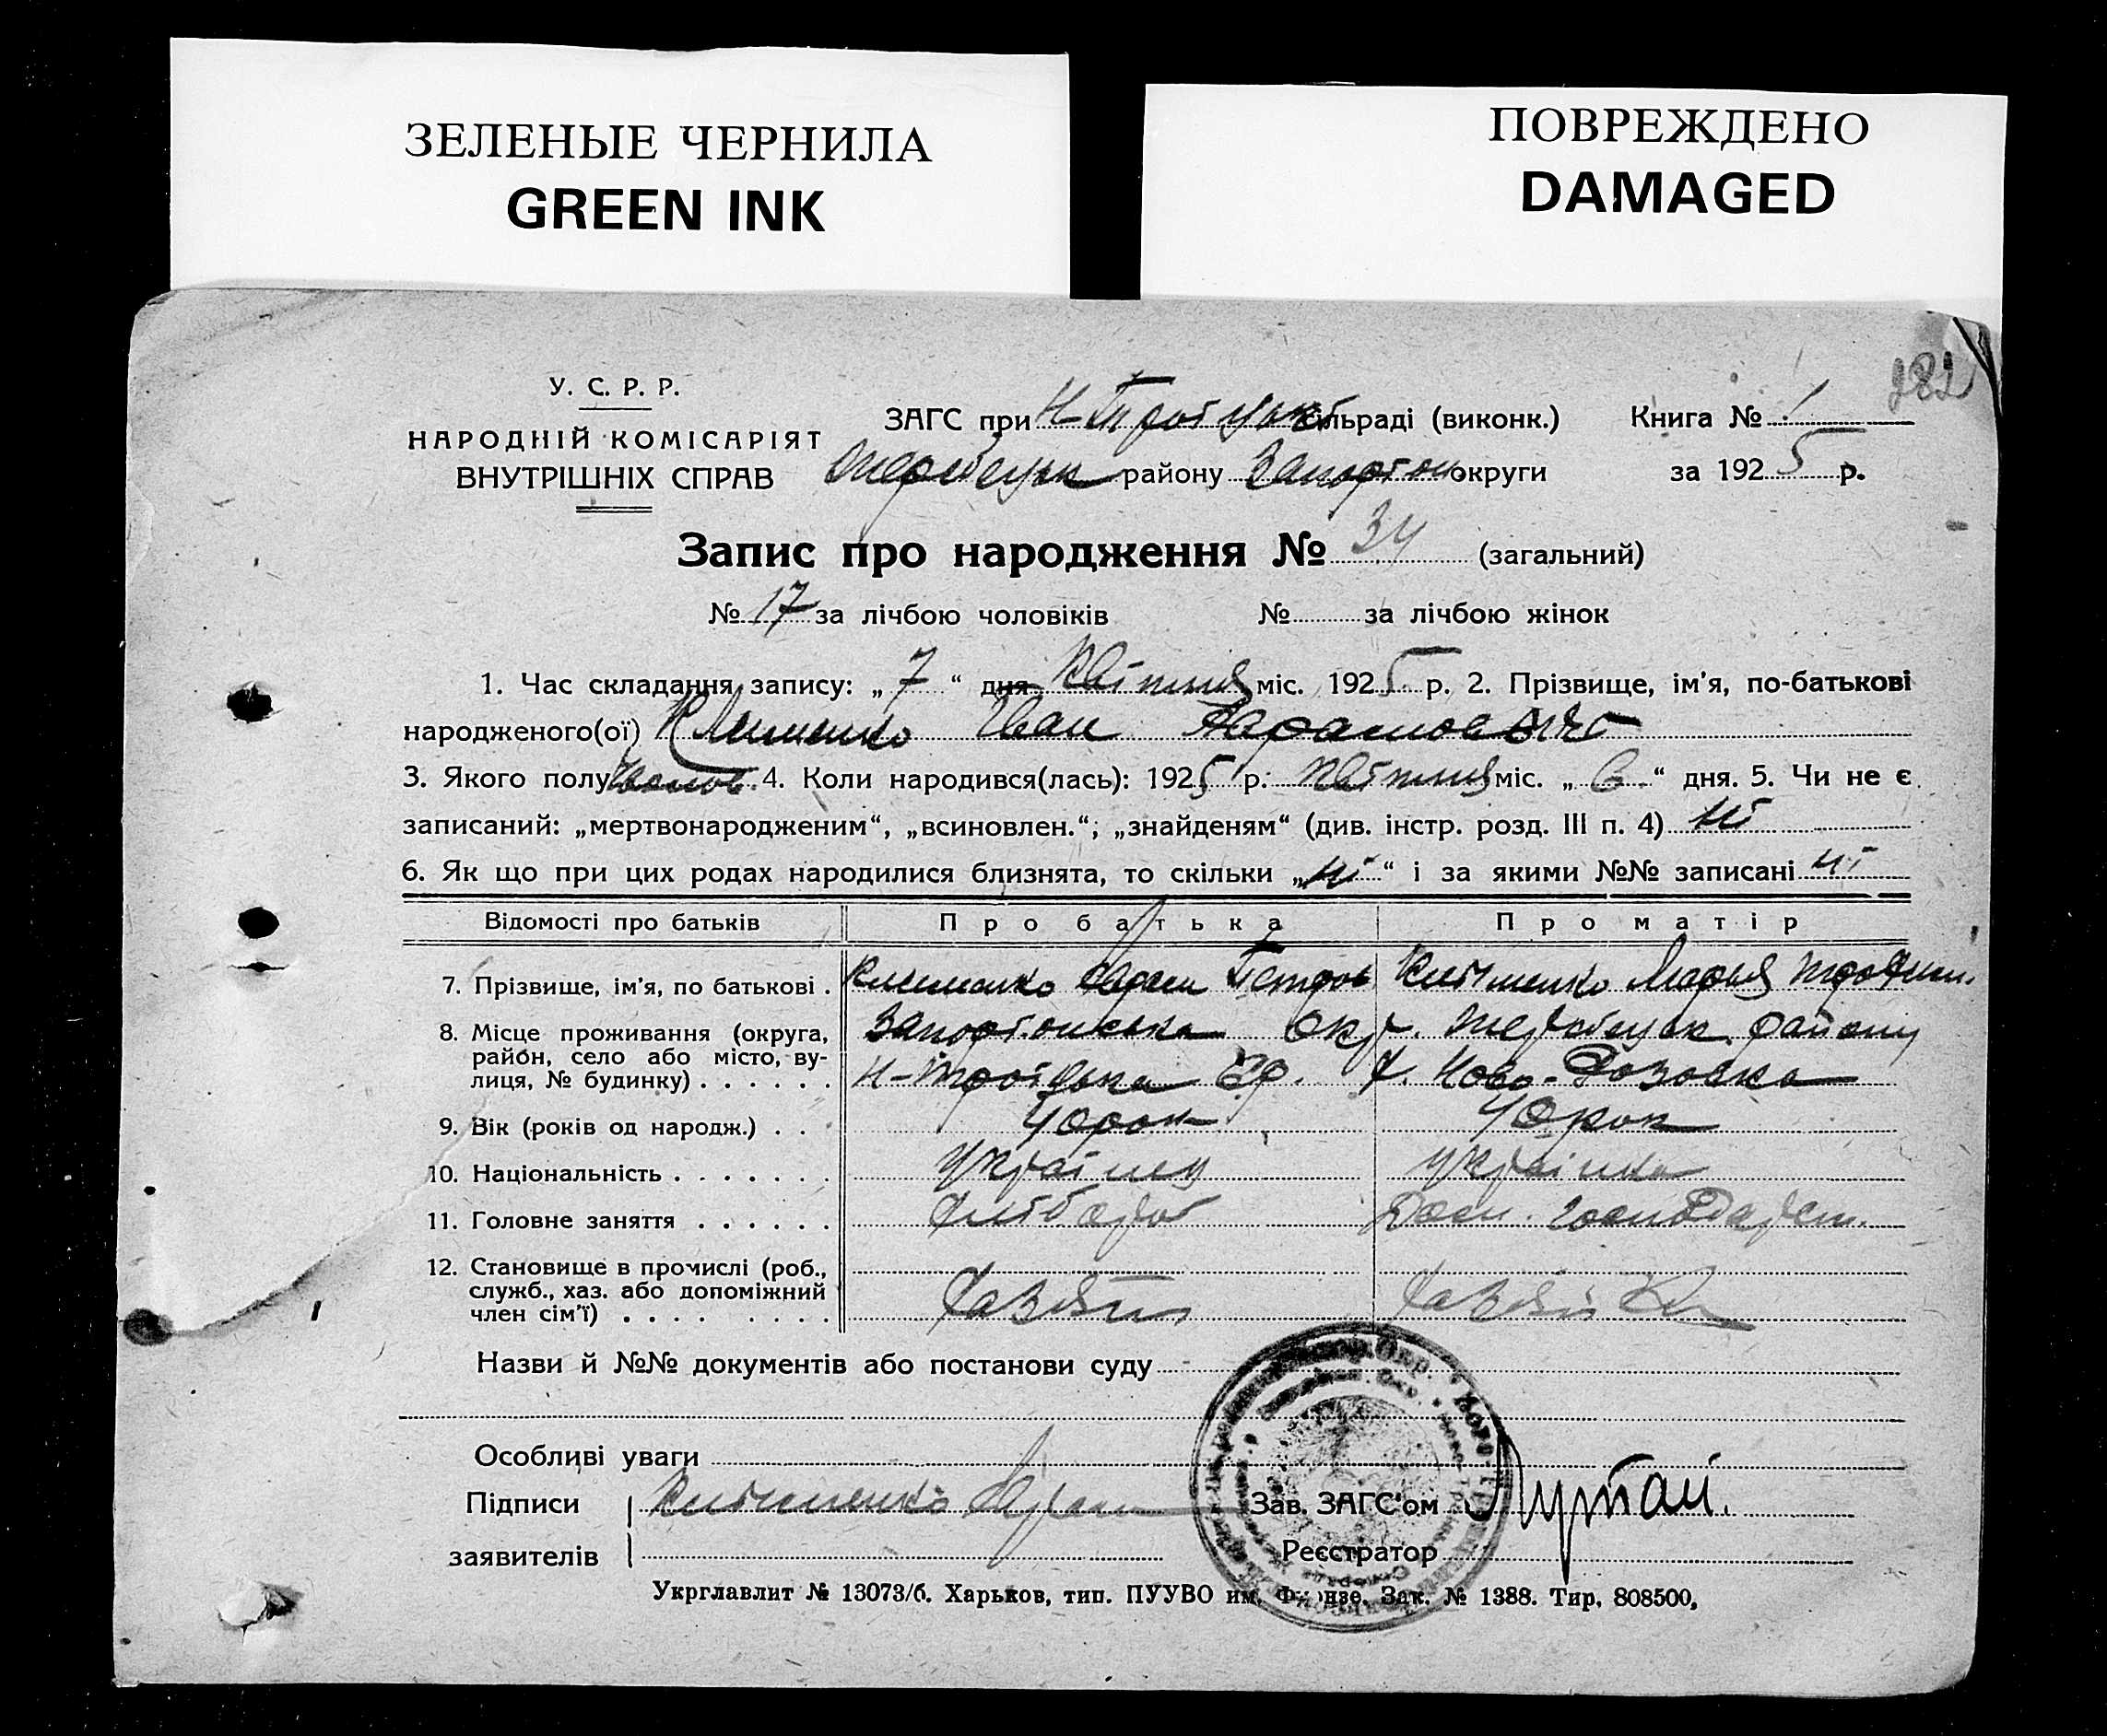 ЗЕЛЕНЫЕ ЧЕРНИЛА
GREEN INK
ПОВРЕЖДЕНО
DAMAGED
282
У. С. Р. Р.
НАРОДНІЙ КОМІСАРІЯТ
ВНУТРІШНІХ СПРАВ
ЗАГС при Н-Троїцьк сільраді (виконк.) Книга № 1
Жеребецьк району Запоріж округи за 1925 р.
Запис про народження № 34 (загальний)
№ 17 за лічбою чоловіків № за лічбою жінок
1. Час складання запису: „ 7 “ дня Квітня міс. 1925 р. 2. Прізвище, ім'я, по-батькові
народженого(ої) Клименко Іван
3. Якого полу 4. Коли народився(лась): 1925 р. квітня міс. „ 6 “ дня. 5. Чи не є
записаний: „мертвонародженим“, „всиновлен.“, „знайденям“ (див. інстр. розд. III п. 4) ні
6. Як що при цих родах народилися близнята, то скільки „ ні “ і за якими №№ записані ні
Відомості про батьків Про батька Про матір
7. Прізвище, ім'я, по батькові . Клименко Петров Клименко Марья
8. Місце проживання (округа, район, село або місто, вулиця, № будинку) . . . . . . Запоріжська Окр. Жеребецьк району
Н-Троїцька с/р. х. Ново-
9. Вік (років од народж.) . . 40 рок 40 рок
10. Національність . . . . . . . Українець Українка
11. Головне заняття . . . . . . Хлібороб Дом. господарст.
12. Становище в прочислі (роб., служб., хаз. або допоміжний член сім'ї) . . . . . . . . Хазяїн Хазяйка
Назви й №№ документів або постанови суду
Особливі уваги
Підписи Клименко Зав. ЗАГС'ом
заявителів Реєстратор
Укрглавлит № 13073/б. Харьков, тип. ПУУВО им. Фрунзе. Зак. № 1388. Тир. 808500,